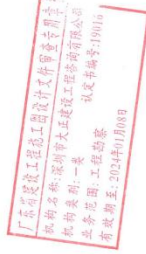 广东省建设工程施工图设计文件审查专用章
机构名称:深圳市大正建设工程咨询有限公司
机构类别:一类 认定书编号:19016
业务范围:工程勘察
有效期至:2024年01月08日